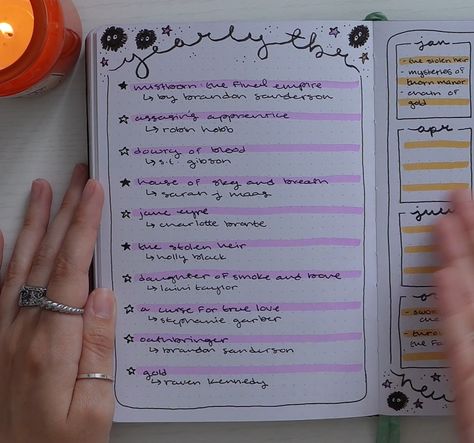 yearly tbr
mistborn: the final empire
↳ by brandon sanderson
assassins apprentice
↳ robin hobb
dowry of blood
↳ s.t. gibson
house of sky and breath
↳ sarah j maas
jane eyre
↳ charlotte bronte
the stolen heir
↳ holly black
daughter of smoke and bone
↳ laini taylor
a curse for true love
↳ stephanie garber
oathbringer
↳ brandon sanderson
gold
↳ raven kennedy
jan
- the stolen heir
- mysteries of
thorn manor
- chain of
gold
apr